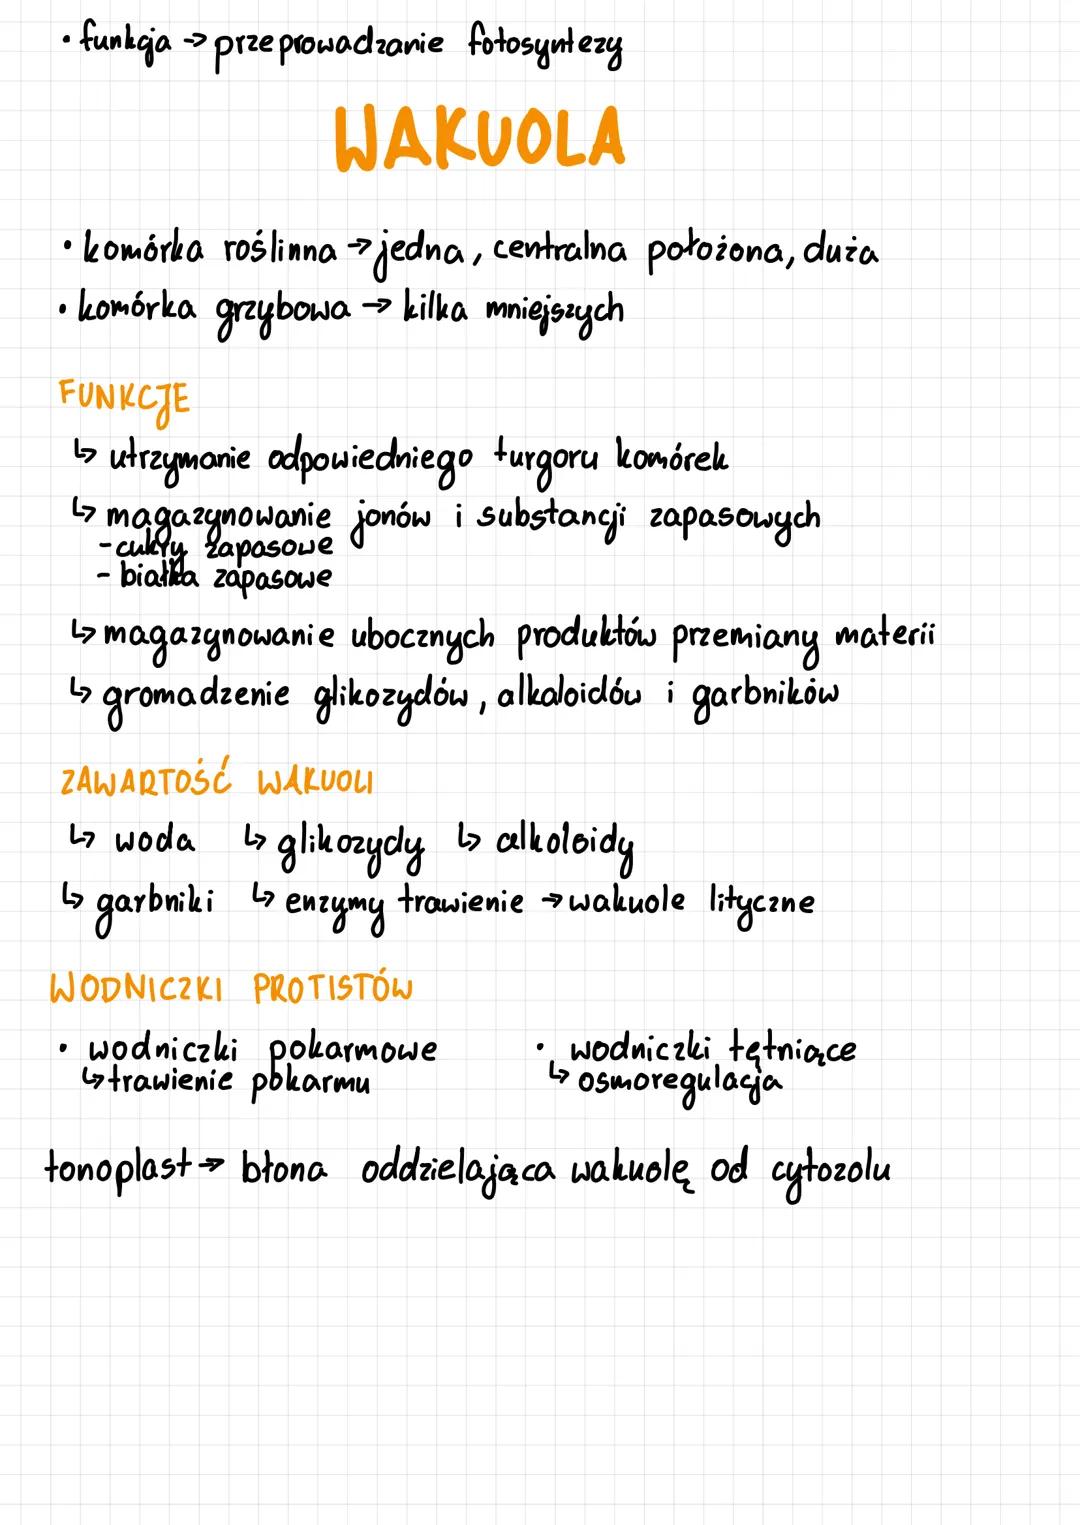 • funkcja → przeprowadzanie fotosyntezy
WAKUOLA
• komórka roślinna → jedna, centralna położona, duża
• komórka grzybowa → kilka mniejszych
FUNKCJE
↳ utrzymanie odpowiedniego turgoru komórek
↳ magazynowanie jonów i substancji zapasowych
- cukry zapasowe
- białka zapasowe
↳ magazynowanie ubocznych produktów przemiany materii
↳ gromadzenie glikozydów, alkaloidów i garbników
ZAWARTOŚĆ WAKUOLI
↳ woda ↳ glikozydy ↳ alkoloidy
↳ garbniki ↳ enzymy trawienie → wakuole lityczne
WODNICZKI PROTISTÓW
• wodniczki pokarmowe • wodniczki tętniące
↳ trawienie pokarmu ↳ osmoregulacja
tonoplast → błona oddzielająca wakuolę od cytozolu